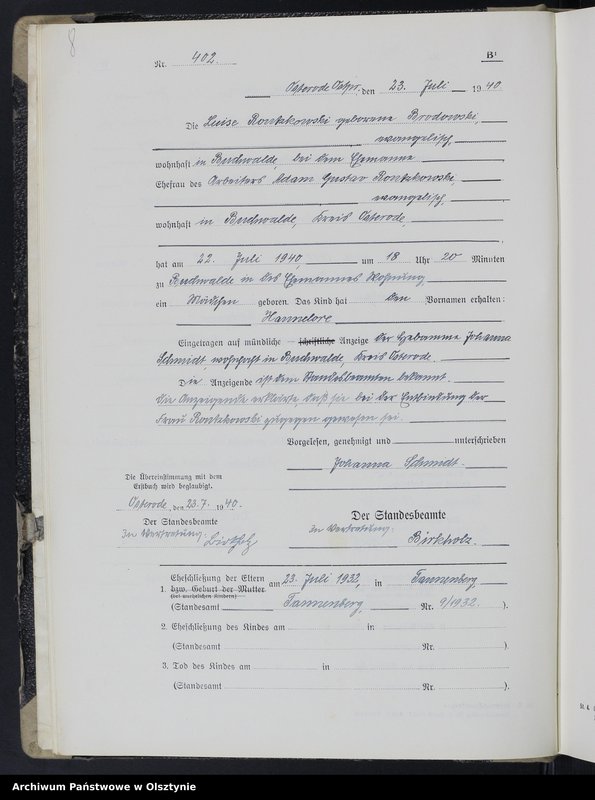 8
Nr. 402. B¹
Osterode Ostpr. den 23. Juli 1940
Die Luise Rontzkowski geborene Brodowski,
evangelisch,
wohnhaft in Buchwalde, bei dem Ehemanne
Ehefrau des Arbeiters Adam Gustav Rontzkowski,
evangelisch,
wohnhaft in Buchwalde, Kreis Osterode,
hat am 22. Juli 1940, um 18 Uhr 20 Minuten
zu Buchwalde in des Ehemannes Wohnung
ein Mädchen geboren. Das Kind hat den Vornamen erhalten:
Hannelore
Eingetragen auf mündliche – schriftliche Anzeige der Hebamme Johanna
Schmidt, wohnhaft in Buchwalde, Kreis Osterode.
Die Anzeigende ist dem Standesbeamten bekannt.
Die Anzeigende erklärte daß sie bei der Entbindung der
Frau Rontzkowski zugegen gewesen sei.
Vorgelesen, genehmigt und unterschrieben
Johanna Schmidt.
Die Übereinstimmung mit dem
Erstbuch wird beglaubigt.
Osterode, den 23.7. 1940.
Der Standesbeamte
In Vertretung:
Der Standesbeamte
In Vertretung:
Birkholz.
Eheschließung der Eltern am 23. Juli 1932, in Tannenberg
1. bzw. Geburt der Mutter
(bei unehelichen Kindern)
(Standesamt Tannenberg, Nr. 9/1932. ).
2. Eheschließung des Kindes am in
(Standesamt Nr. ).
3. Tod des Kindes am in
(Standesamt Nr. ).
Archiwum Państwowe w Olsztynie